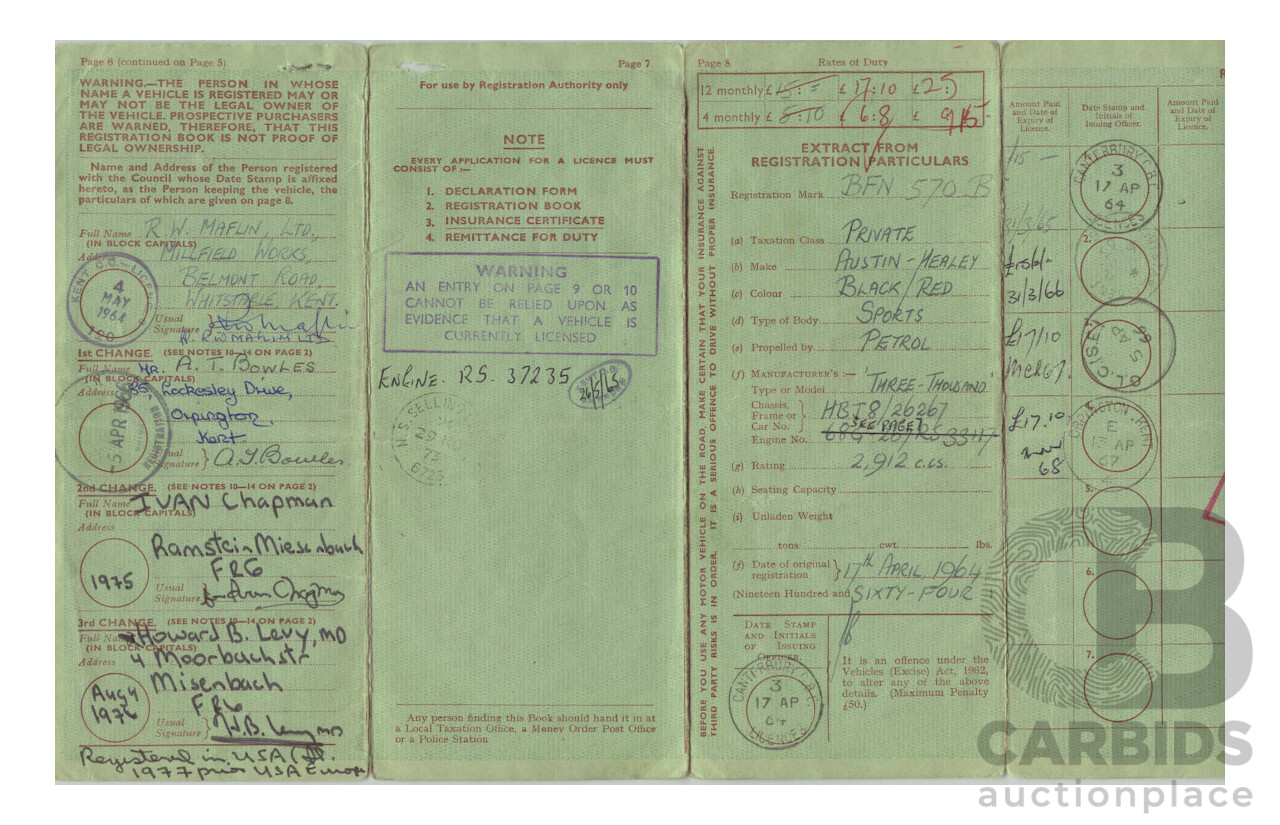 Page 6 (continued on Page 5)
WARNING.—THE PERSON IN WHOSE
NAME A VEHICLE IS REGISTERED MAY OR
MAY NOT BE THE LEGAL OWNER OF
THE VEHICLE. PROSPECTIVE PURCHASERS
ARE WARNED, THEREFORE, THAT THIS
REGISTRATION BOOK IS NOT PROOF OF
LEGAL OWNERSHIP.
Name and Address of the Person registered
with the Council whose Date Stamp is affixed
hereto, as the Person keeping the vehicle, the
particulars of which are given on page 8.
Full Name R.W. MAFLIN, LTD.,
(IN BLOCK CAPITALS)
Address MILLFIELD WORKS,
BELMONT ROAD,
WHITSTABLE, KENT.
KENT C.C. LICENCES
4
MAY
1964
Usual
Signature
R.W. MAFLIN LTD
1st CHANGE. (SEE NOTES 10—14 ON PAGE 2)
Full Name MR. A. T. BOWLES
(IN BLOCK CAPITALS)
Address 35, Lockesley Drive,
Orpington,
Kent.
5 APR 1966
REGISTRATION
Usual
Signature A.T. Bowles
2nd CHANGE. (SEE NOTES 10—14 ON PAGE 2)
Full Name IVAN Chapman
(IN BLOCK CAPITALS)
Address
Ramstein Miesenbach
FRG
1975
Usual
Signature Ivan Chapman
3rd CHANGE. (SEE NOTES 10—14 ON PAGE 2)
Full Name Howard B. Levy, MD
(IN BLOCK CAPITALS)
Address 4 Moorbachstr
Misenbach
FRG
Aug 4
1976
Usual
Signature H.B. Levy MD
Registered in USA
1977 prior USA Europe
Page 7
For use by Registration Authority only
NOTE
EVERY APPLICATION FOR A LICENCE MUST
CONSIST OF :—
1. DECLARATION FORM
2. REGISTRATION BOOK
3. INSURANCE CERTIFICATE
4. REMITTANCE FOR DUTY
WARNING
AN ENTRY ON PAGE 9 OR 10
CANNOT BE RELIED UPON AS
EVIDENCE THAT A VEHICLE IS
CURRENTLY LICENSED
ENGINE. RS. 37235
26/5/65
N.S. SELLING
29 NO
73
6725
Any person finding this Book should hand it in at
a Local Taxation Office, a Money Order Post Office
or a Police Station
BEFORE YOU USE ANY MOTOR VEHICLE ON THE ROAD, MAKE CERTAIN THAT YOUR INSURANCE AGAINST
THIRD PARTY RISKS IS IN ORDER. IT IS A SERIOUS OFFENCE TO DRIVE WITHOUT PROPER INSURANCE.
Page 8
Rates of Duty
12 monthly £ 15:= £ 17:10 £ 25:)
4 monthly £ 5:10 £ 6:8 £ 9/15
EXTRACT FROM
REGISTRATION PARTICULARS
Registration Mark BFN 570 B
(a) Taxation Class PRIVATE
(b) Make AUSTIN-HEALEY
(c) Colour BLACK/RED
(d) Type of Body SPORTS
(e) Propelled by PETROL
(f) MANUFACTURER'S :—
Type or Model 'THREE-THOUSAND'
Chassis,
Frame or
Car No. HBJ8/26267
SEE PAGE 7
Engine No.
(g) Rating 2,912 c.cs.
(h) Seating Capacity
(i) Unladen Weight
tons cwt. lbs.
(j) Date of original
registration 17th APRIL, 1964
(Nineteen Hundred and SIXTY-FOUR )
DATE STAMP
AND INITIALS
OF ISSUING
OFFICER.
CANTERBURY C.B.C.
3
17 AP
64
LICENCES
It is an offence under the
Vehicles (Excise) Act, 1962,
to alter any of the above
details. (Maximum Penalty
£50.)
Amount Paid
and Date of
Expiry of
Licence.
Date Stamp and
Initials of
Issuing Officer.
Amount Paid
and Date of
Expiry of
Licence.
/15 —
31/3/65
CANTERBURY C.B.C.
3
17 AP
64
LICENCES
2.
31/3/66
£17/10
£17.10
68
ORPINGTON, KENT
E
AP
67
5.
6.
7.
CB
CARBIDS
auctionplace